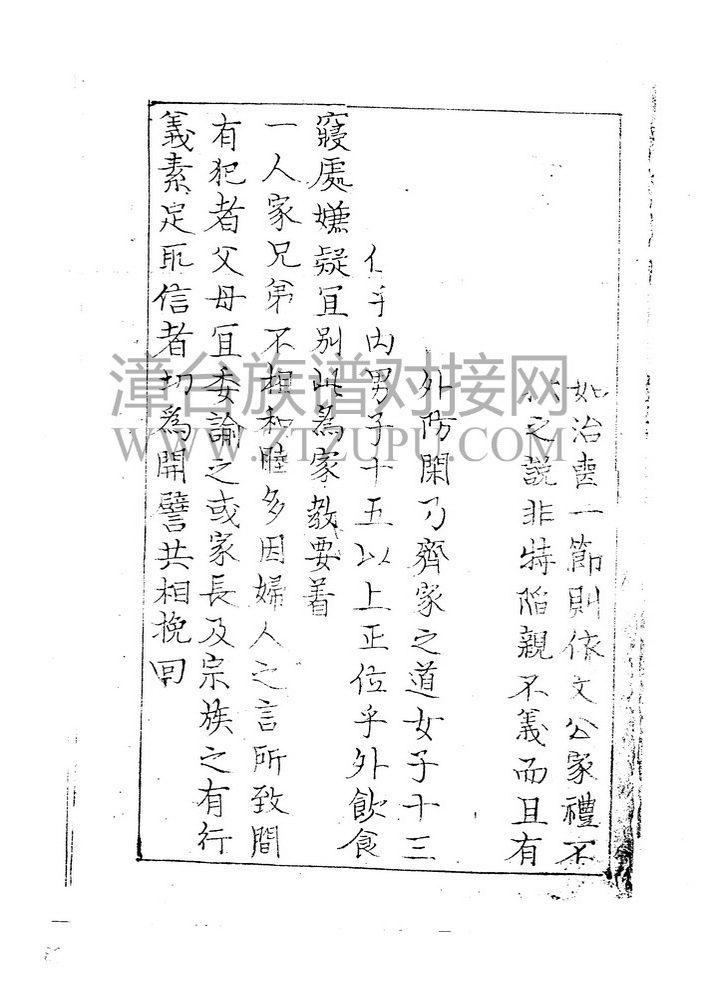 如治喪一節則依文公家禮不
之說非特陷親不義而且有
外防閑乃齊家之道女子十三
乎內男子十五以上正位乎外飲食
寢處嫌疑宜別此為家教要着
一人家兄弟不相和睦多因婦人之言所致間
有犯者父母宜委諭之或家長及宗族之有行
義素足取信者切為開譬共相挽回
漳台族谱对接网
WWW.ZTZUPU.COM